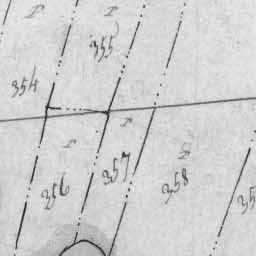 P
P
355
354
P
P
P
356
357
358
35